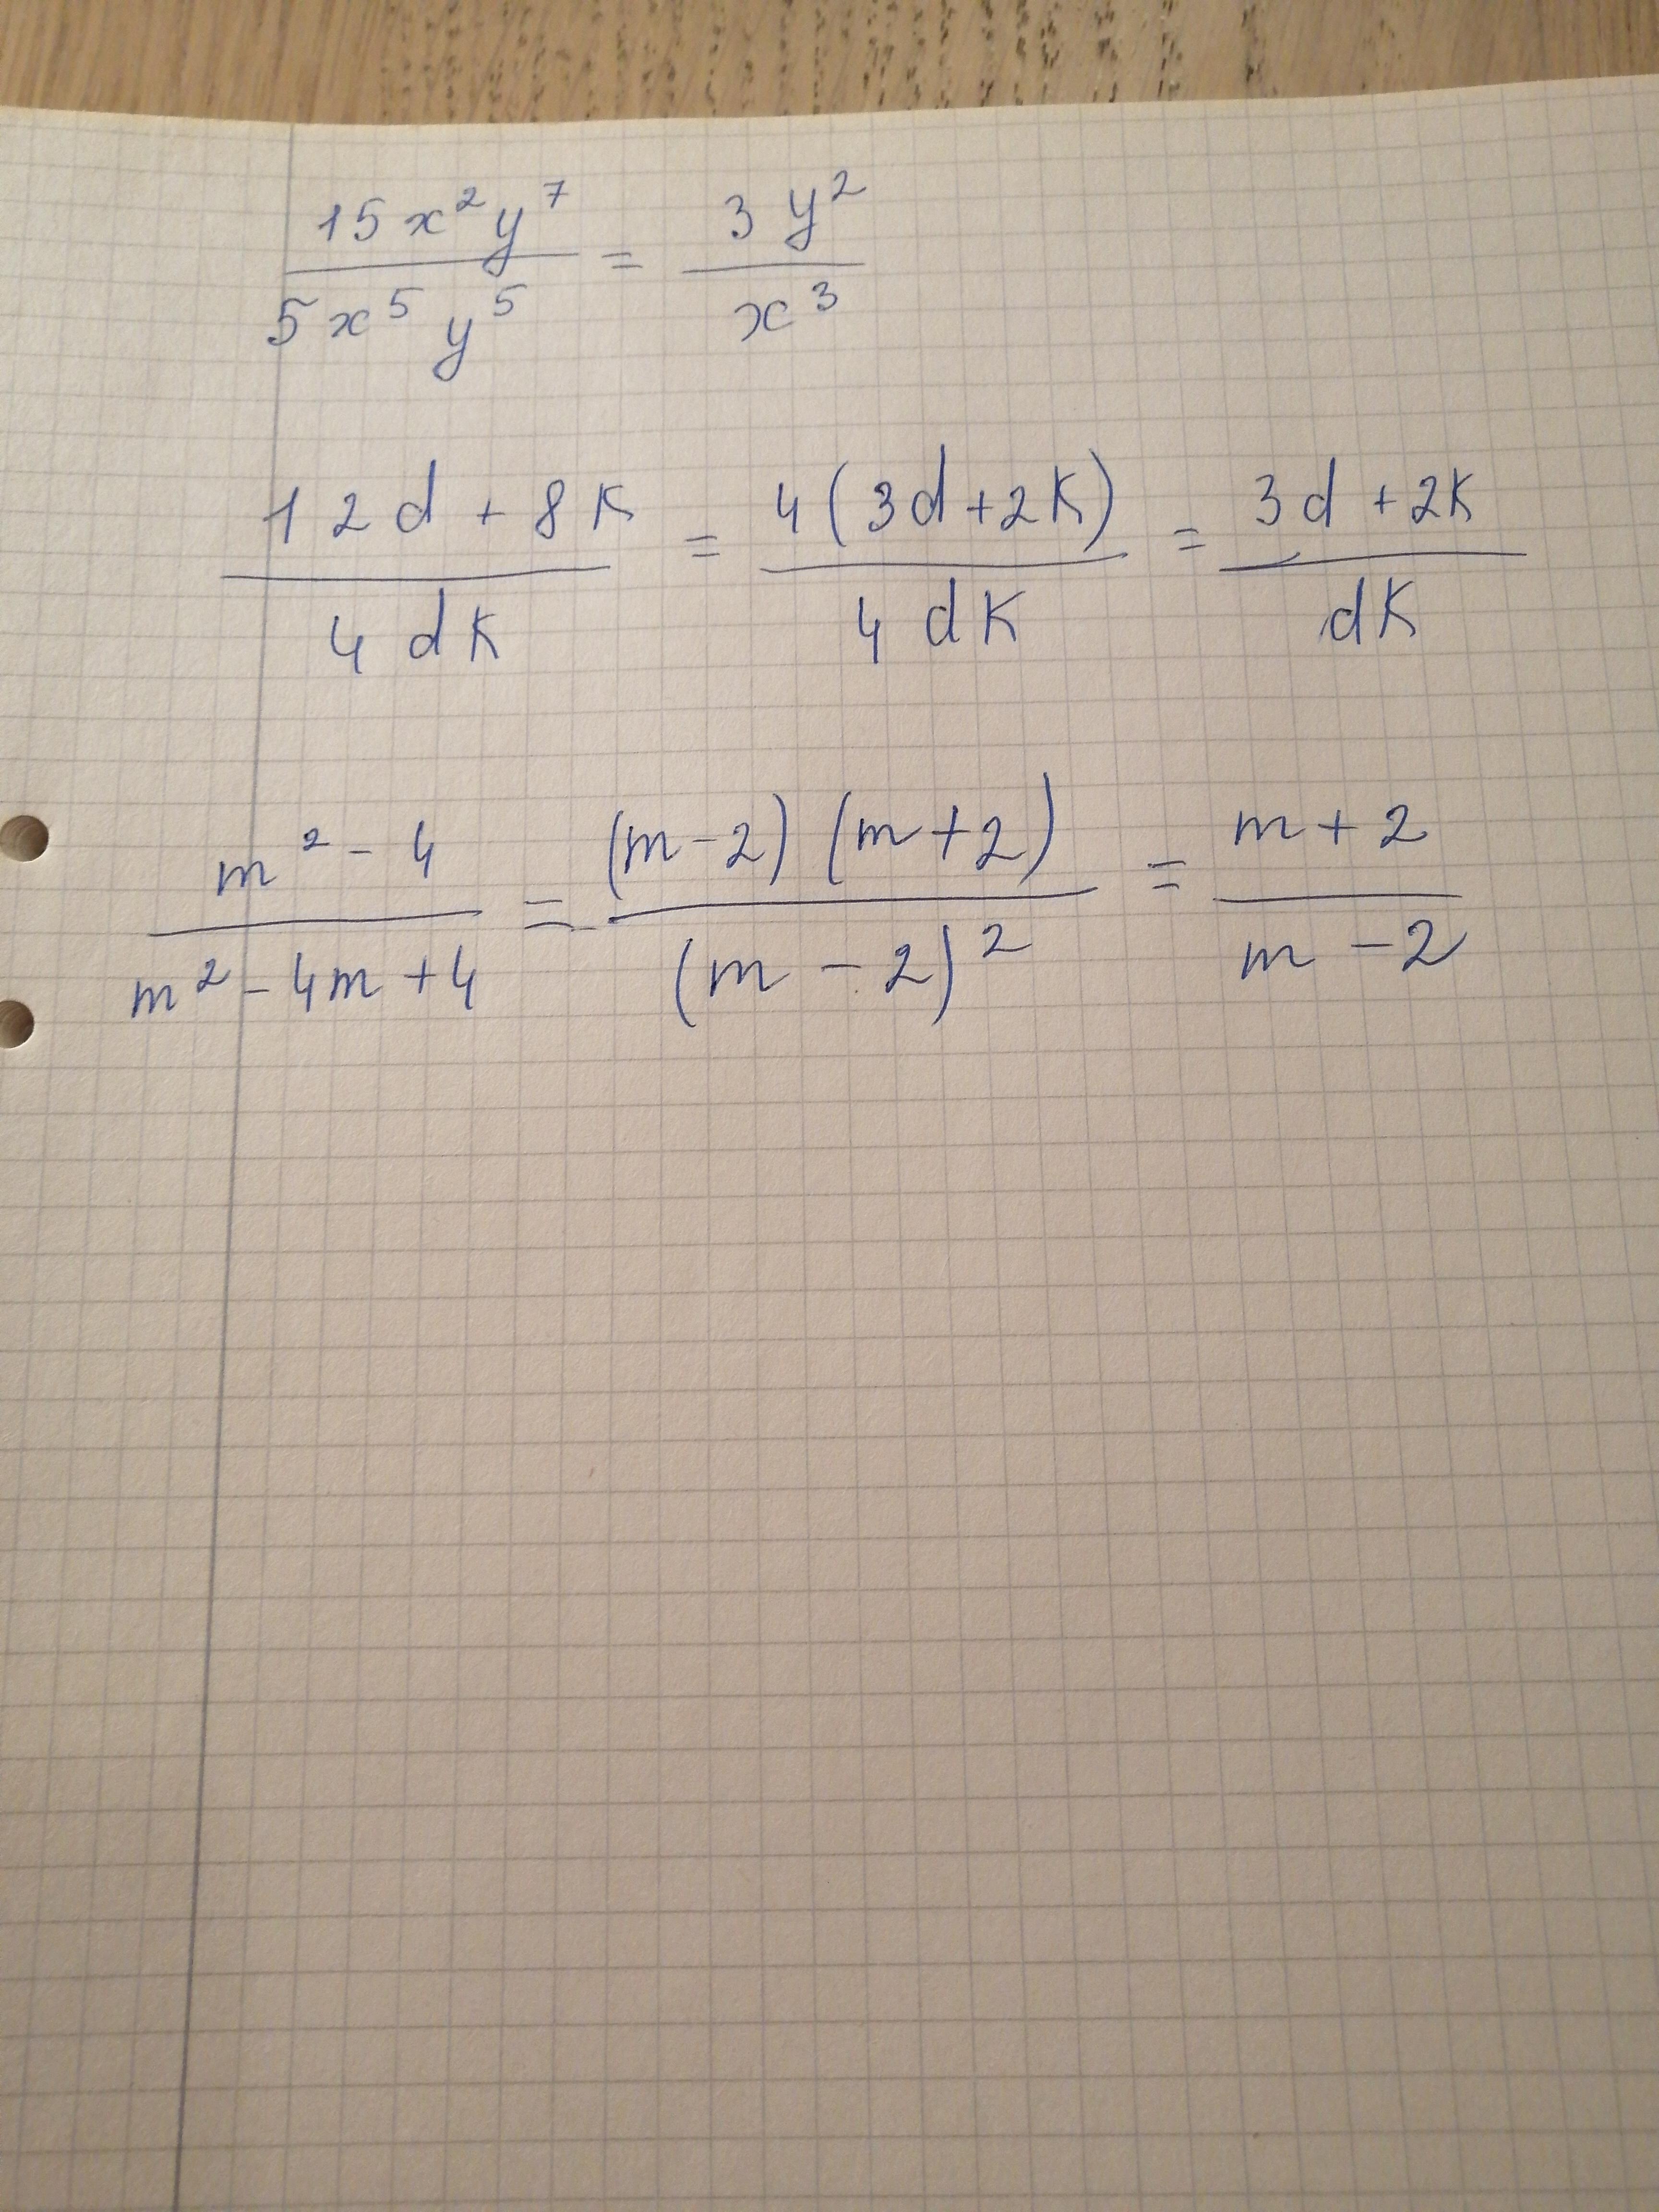 15x²y⁷ / 5x⁵y⁵ = 3y² / x³
12d + 8k / 4dk = 4(3d+2k) / 4dk = 3d+2k / dk
m²-4 / m²-4m+4 = (m-2)(m+2) / (m-2)² = m+2 / m-2